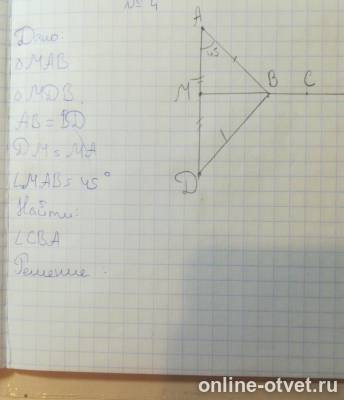 № 4
Дано:
△MAB
△MDB
AB = BD
DM = MA
∠MAB = 45°
Найти:
∠CBA
Решение:
A
45
M
B
C
D
online-otvet.ru